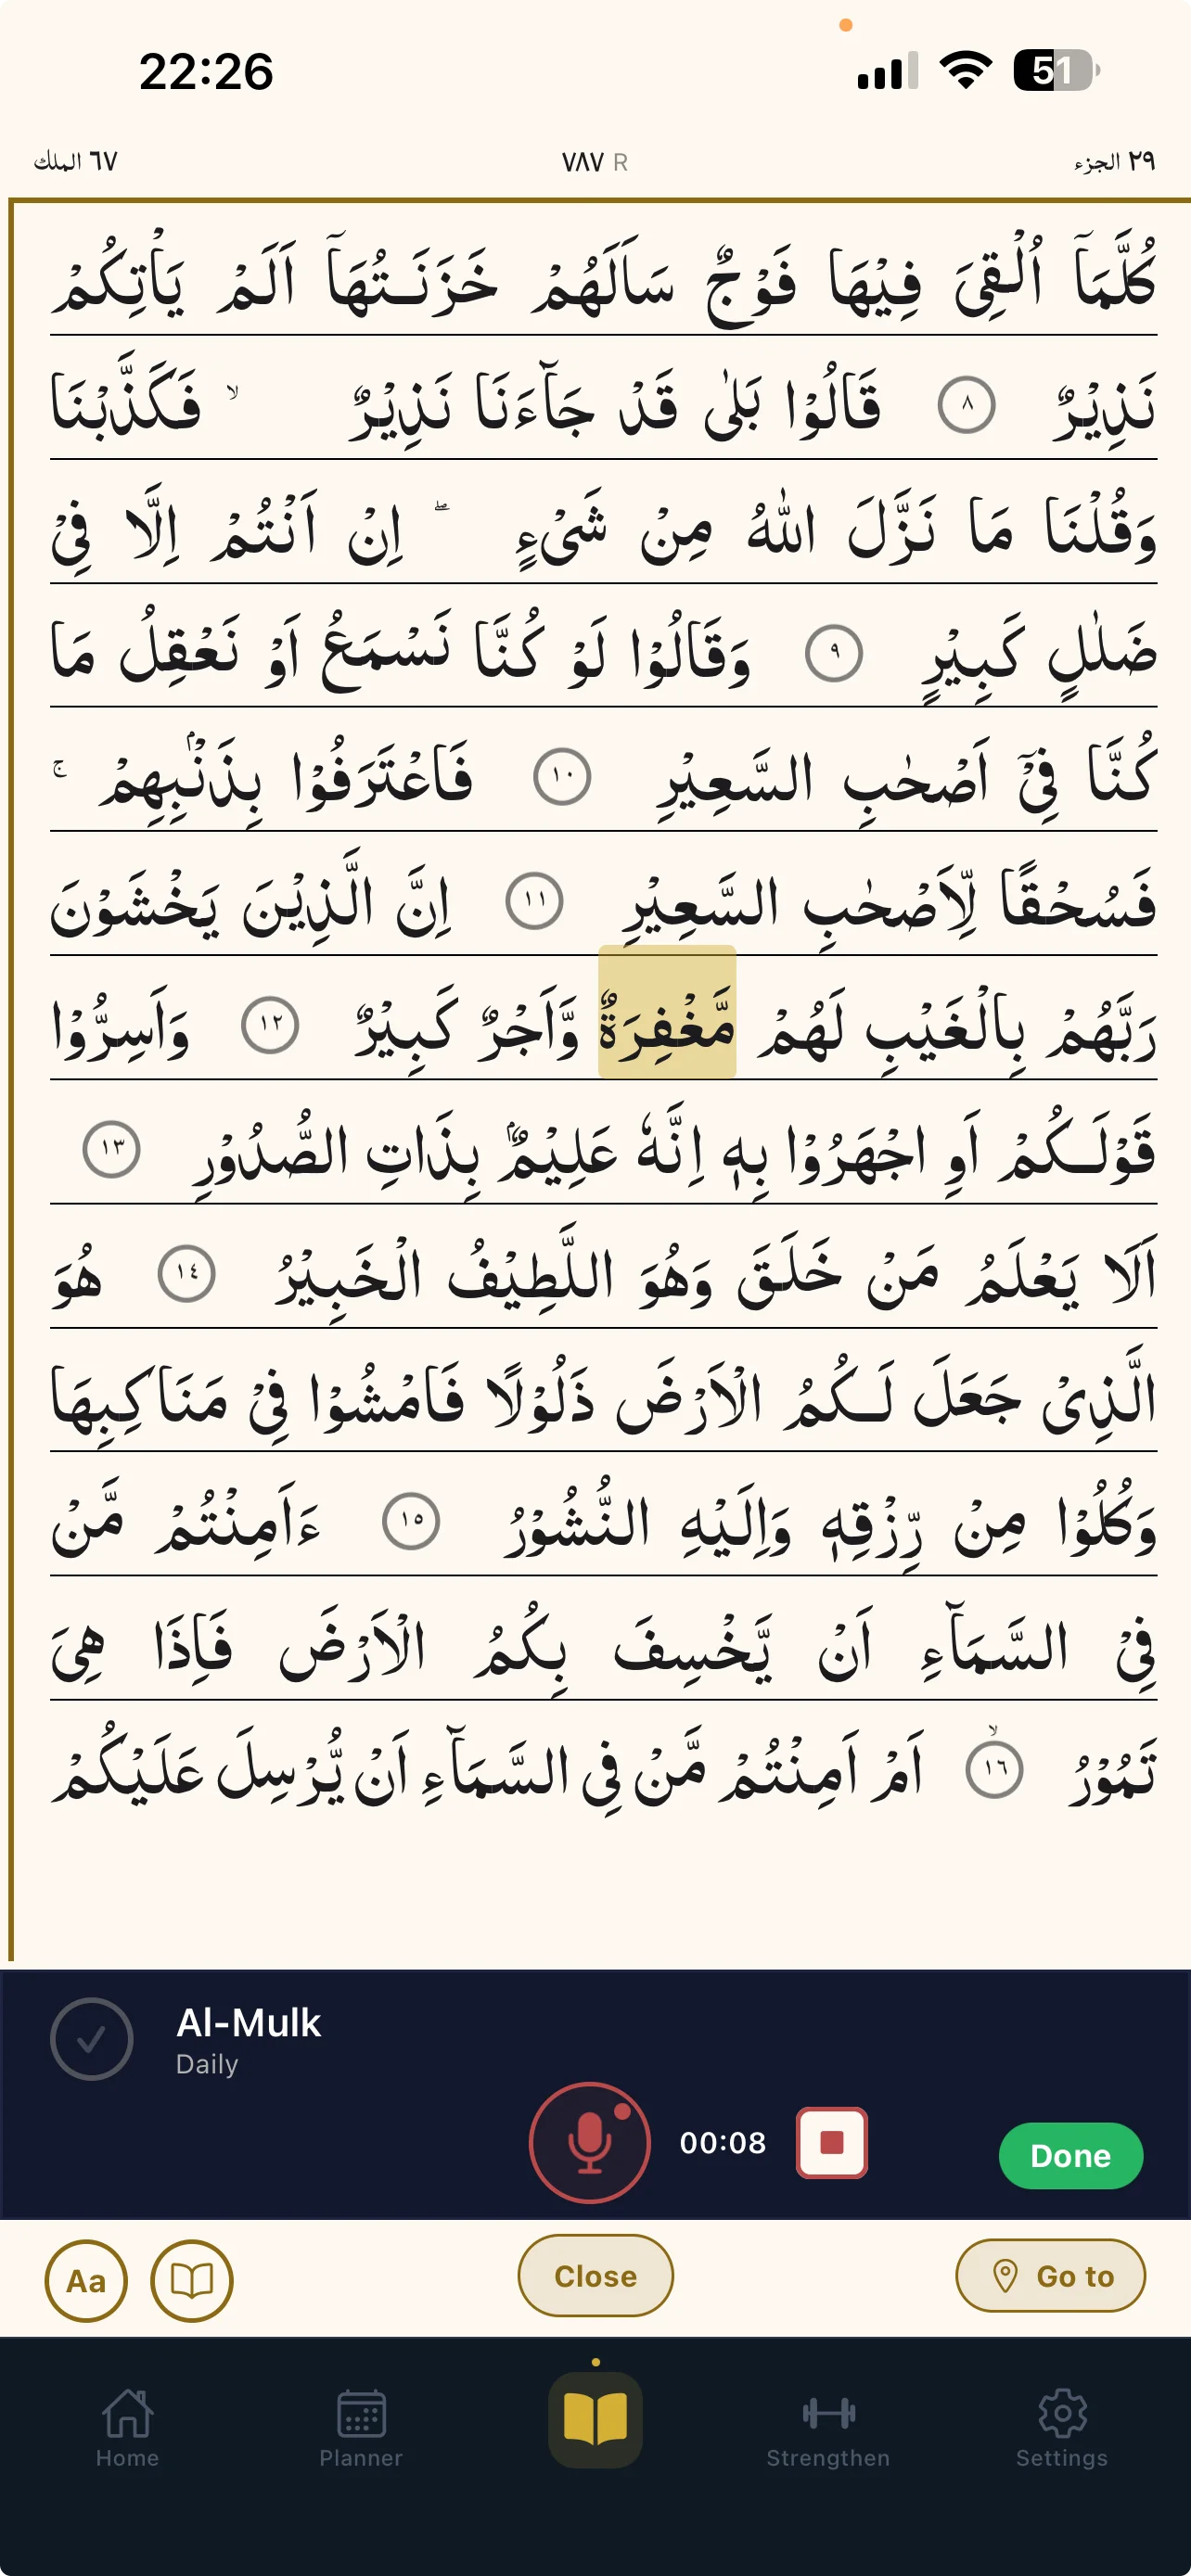 22:26
51
٢٩ الجزء
٧٨٧ R
٦٧ الملك
كُلَّمَاۤ اُلْقِىَ فِيْهَا فَوْجٌ سَاَلَهُمْ خَزَنَـتُهَاۤ اَلَمْ يَاْتِكُمْ
نَذِيْرٌ ٨ قَالُوْا بَلٰى قَدْ جَآءَنَا نَذِيْرٌ ۙ فَكَذَّبْنَا
وَقُلْنَا مَا نَزَّلَ اللّٰهُ مِنْ شَىْءٍ ۖ اِنْ اَنْتُمْ اِلَّا فِىْ
ضَلٰلٍ كَبِيْرٍ ٩ وَقَالُوْا لَوْ كُنَّا نَسْمَعُ اَوْ نَعْقِلُ مَا
كُنَّا فِىْۤ اَصْحٰبِ السَّعِيْرِ ١٠ فَاعْتَرَفُوْا بِذَنْۢبِهِمْ ۚ
فَسُحْقًا لِّاَصْحٰبِ السَّعِيْرِ ١١ اِنَّ الَّذِيْنَ يَخْشَوْنَ
رَبَّهُمْ بِالْغَيْبِ لَهُمْ مَّغْفِرَةٌ وَّاَجْرٌ كَبِيْرٌ ١٢ وَاَسِرُّوْا
قَوْلَـكُمْ اَوِ اجْهَرُوْا بِهٖ اِنَّهٗ عَلِيْمٌۢ بِذَاتِ الصُّدُوْرِ ١٣
اَلَا يَعْلَمُ مَنْ خَلَقَ وَهُوَ اللَّطِيْفُ الْخَبِيْرُ ١٤ هُوَ
الَّذِىْ جَعَلَ لَـكُمُ الْاَرْضَ ذَلُوْلًا فَامْشُوْا فِىْ مَنَاكِبِهَا
وَكُلُوْا مِنْ رِّزْقِهٖ وَاِلَيْهِ النُّشُوْرُ ١٥ ءَاَمِنْتُمْ مَّنْ
فِىْ السَّمَآءِ اَنْ يَّخْسِفَ بِكُمُ الْاَرْضَ فَاِذَا هِىَ
تَمُوْرُ ۙ ١٦ اَمْ اَمِنْتُمْ مَّنْ فِى السَّمَآءِ اَنْ يُّرْسِلَ عَلَيْكُمْ
Al-Mulk
Daily
00:08
Done
Aa
Close
Go to
Home
Planner
Strengthen
Settings